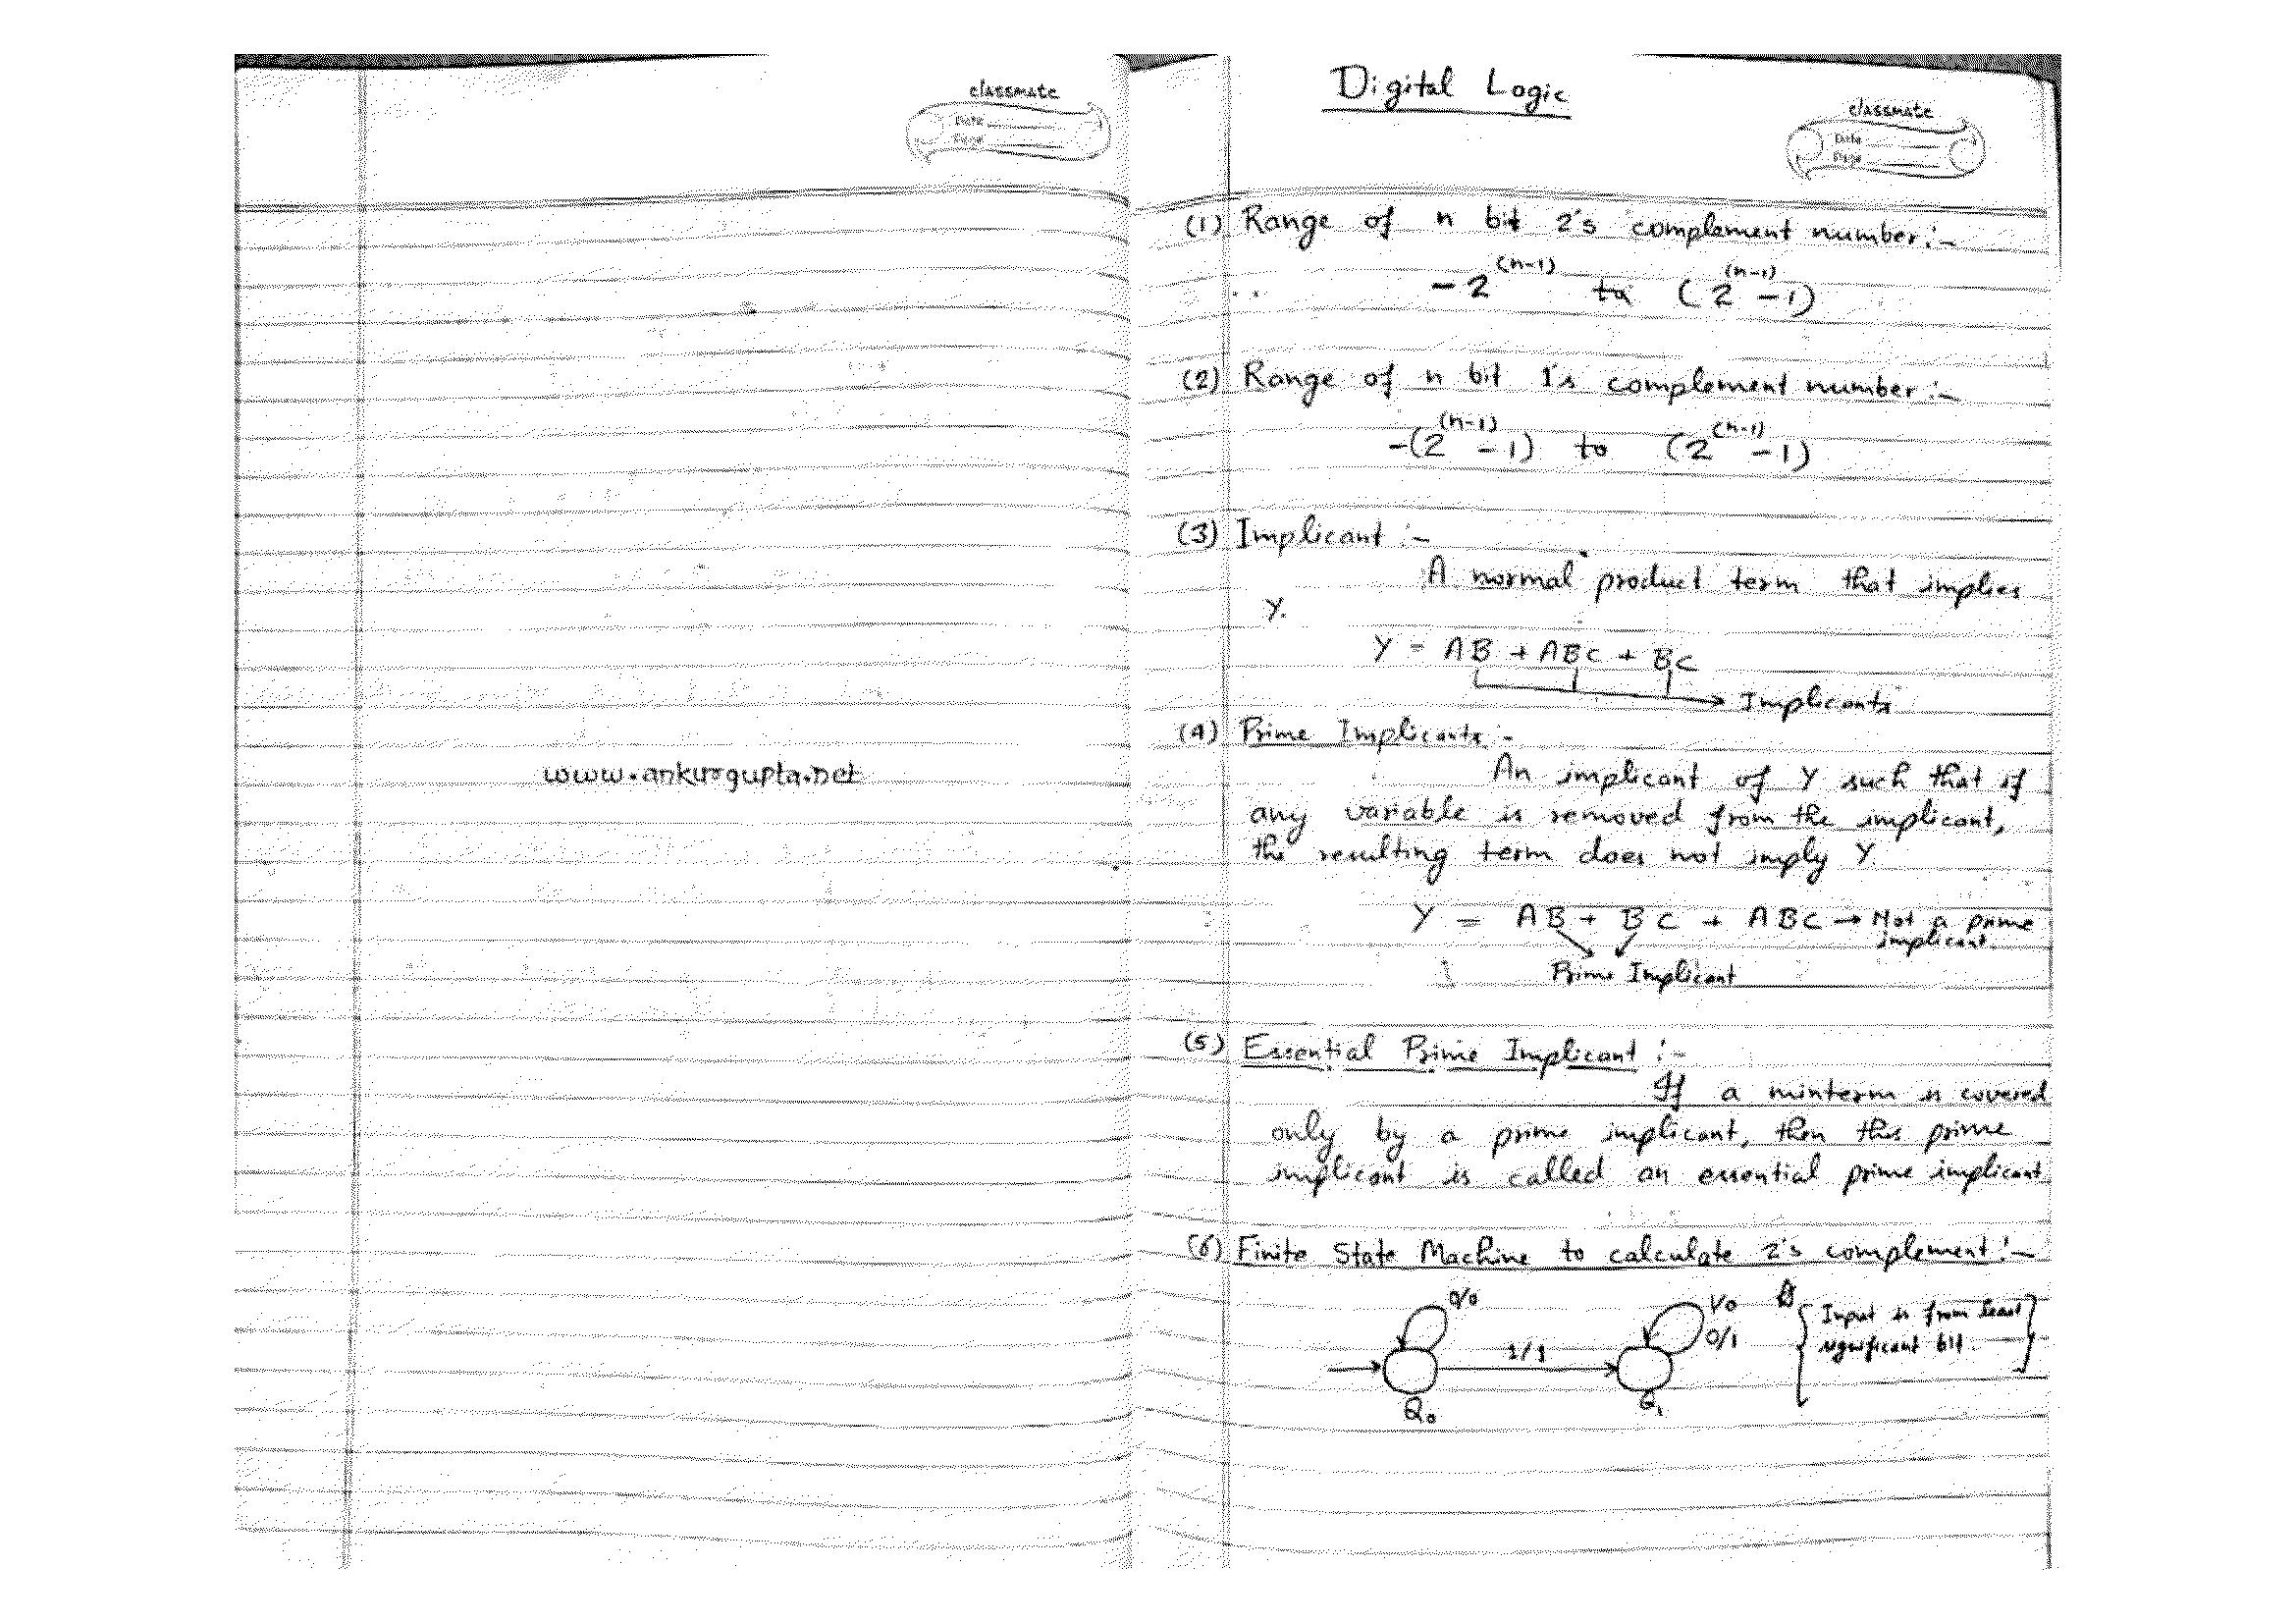 classmate
Date
Page
www.ankurgupta.net
Digital Logic
classmate
Date
Page
(1) Range of n bit 2's complement number:-
-2^(n-1) to (2^(n-1) -1)
(2) Range of n bit 1's complement number:-
-(2^(n-1) -1) to (2^(n-1) -1)
(3) Implicant :-
A normal product term that implies
Y.
Y = AB + ABC + BC
→ Implicants
(4) Prime Implicants:-
An implicant of Y such that if
any variable is removed from the implicant,
the resulting term does not imply Y.
Y = AB + BC + ABC → Not a prime
implicant.
Prime Implicant
(5) Essential Prime Implicant :-
If a minterm is covered
only by a prime implicant, then this prime
implicant is called an essential prime implicant
(6) Finite State Machine to calculate 2's complement:-
0/0
1/0
0/1
1/1
Q0
Q1
{ Input is from least
significant bit. }